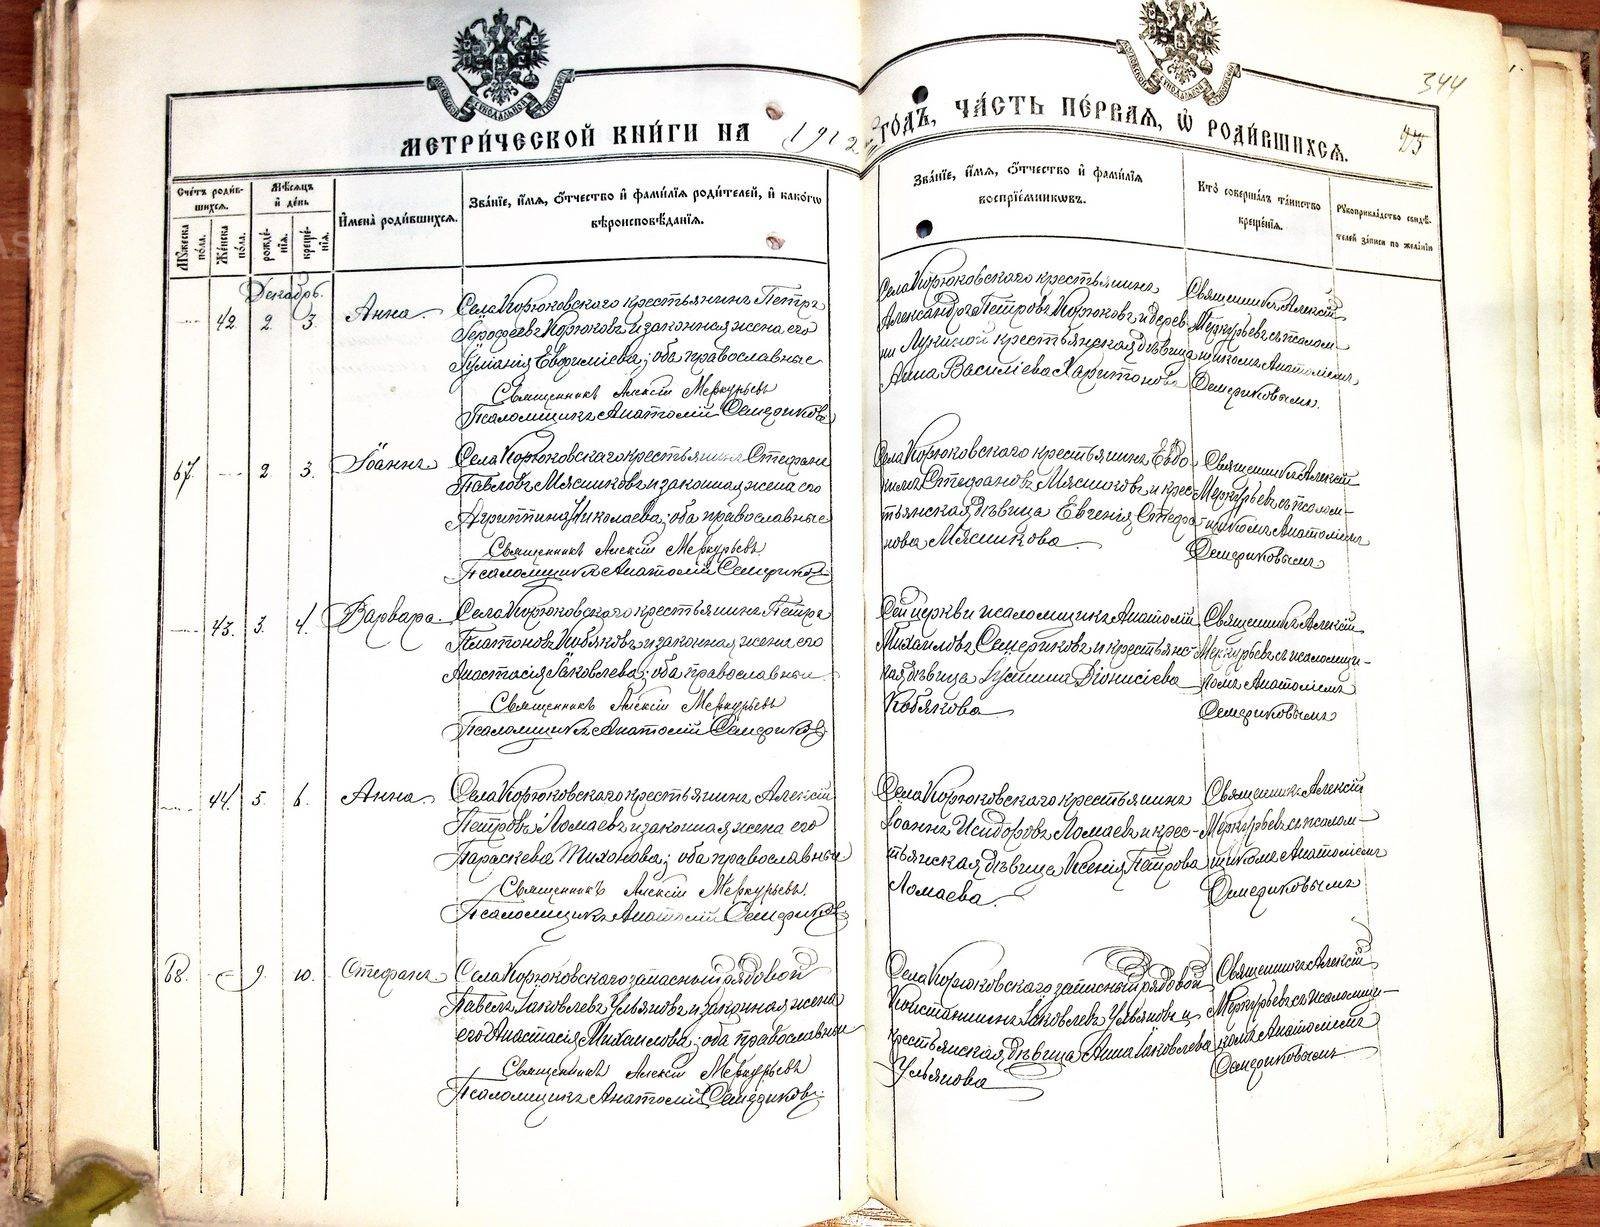 344
МЕТРИ́ЧЕСКОЙ КНИ́ГИ НА 1912 ГОДЪ, ЧА́СТЬ ПЕ́РВАѦ, Ѡ҆ РОДИ́ВШИХСѦ.
Сче́тъ роди́в-
шихсѧ.
Мѣ́сѧцъ
и҆ де́нь
Мꙋ́жеска
по́ла.
Же́нска
по́ла.
рожде́-
нїѧ.
креще́-
нїѧ.
И҆мена̀ роди́вшихсѧ.
Зва́нїе, и҆́мѧ, ѻ҆́тчество и҆ фами́лїѧ роди́телей, и҆ како́гѡ
вѣроисповѣ́данїѧ.
Зва́нїе, и҆́мѧ, ѻ҆́тчество и҆ фами́лїѧ
воспрїе́мникѡвъ.
Кто̀ соверша́лъ та́инство
креще́нїѧ.
Рꙋкоприкла́дство свидѣ́-
телей за́писи по жела́нїю
Декабрь.
42 2. 3. Анна.
Села Корюковскаго крестьянинъ Петръ
Іерофеевъ Корюковъ и законная жена его
Іуліанія Евфиміева; оба православные
Священникъ Алексій Меркурьевъ
Псаломщикъ Анатолій Семериковъ
Села Корюковскаго крестьянинъ
Александръ Петровъ Корюковъ и дерев-
ни Лукиной крестьянская дѣвица
Анна Василіева Харитонова
Священникъ Алексій
Меркурьевъ съ псалом-
щикомъ Анатоліемъ
Семериковымъ.
67. 2 3. Іоаннъ
Села Корюковскаго крестьянинъ Стефанъ
Павловъ Мясниковъ и законная жена его
Агриппина Николаева; оба православные
Священникъ Алексій Меркурьевъ
Псаломщикъ Анатолій Семериковъ
Села Корюковскаго крестьянинъ Евдо-
кимъ Стефановъ Мясниковъ и крес-
тьянская дѣвица Евгенія Стефа-
нова Мясникова.
Священникъ Алексій
Меркурьевъ съ псалом-
щикомъ Анатоліемъ
Семериковымъ
43. 3. 4. Варвара.
Села Корюковскаго крестьянинъ Петръ
Платоновъ Кобяковъ и законная жена его
Анастасія Іаковлева; оба православные.
Священникъ Алексій Меркурьевъ
Псаломщикъ Анатолій Семериковъ
Сей церкви псаломщикъ Анатолій
Михаиловъ Семериковъ и крестьянс-
кая дѣвица Іустина Діонисіева
Кобякова
Священникъ Алексій
Меркурьевъ съ псаломщи-
комъ Анатоліемъ
Семериковымъ
44. 5. 6. Анна.
Села Корюковскаго крестьянинъ Алексій
Петровъ Ломаевъ и законная жена его
Параскева Тихонова; оба православные
Священникъ Алексій Меркурьевъ
Псаломщикъ Анатолій Семериковъ
Села Корюковскаго крестьянинъ
Іоаннъ Исидоровъ Ломаевъ и крес-
тьянская дѣвица Ксенія Петрова
Ломаева.
Священникъ Алексій
Меркурьевъ съ псалом-
щикомъ Анатоліемъ
Семериковымъ
68. 9. 10. Стефанъ
Села Корюковскаго запасный рядовой
Павелъ Іаковлевъ Ульяновъ и законная жена
его Анастасія Михаилова; оба православные
Священникъ Алексій Меркурьевъ
Псаломщикъ Анатолій Семериковъ.
Села Корюковскаго запасный рядовой
Константинъ Іаковлевъ Ульяновъ и
крестьянская дѣвица Анна Іаковлева
Ульянова
Священникъ Алексій
Меркурьевъ съ псаломщи-
комъ Анатоліемъ
Семериковымъ